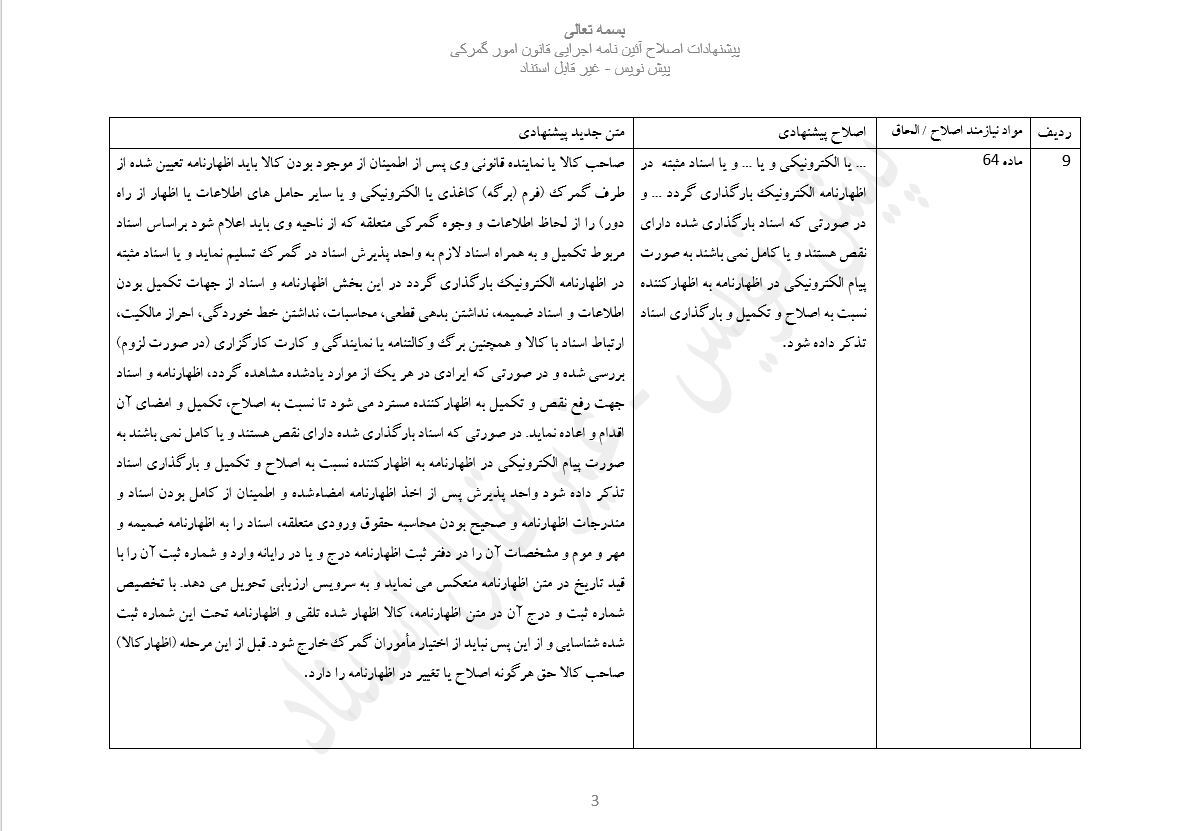 بسمه تعالی
پیشنهادات اصلاح آئین نامه اجرایی قانون امور گمرکی
پیش نویس - غیر قابل استناد
ردیف
مواد نیازمند اصلاح / الحاق
اصلاح پیشنهادی
متن جدید پیشنهادی
9
ماده 64
... یا الکترونیکی و یا ... و یا اسناد مثبته در
اظهارنامه الکترونیک بارگذاری گردد ... و
در صورتی که اسناد بارگذاری شده دارای
نقص هستند و یا کامل نمی باشند به صورت
پیام الکترونیکی در اظهارنامه به اظهارکننده
نسبت به اصلاح و تکمیل و بارگذاری اسناد
تذکر داده شود.
صاحب کالا یا نماینده قانونی وی پس از اطمینان از موجود بودن کالا باید اظهارنامه تعیین شده از
طرف گمرک (فرم (برگه) کاغذی یا الکترونیکی و یا سایر حامل های اطلاعات یا اظهار از راه
دور) را از لحاظ اطلاعات و وجوه گمرکی متعلقه که از ناحیه وی باید اعلام شود براساس اسناد
مربوط تکمیل و به همراه اسناد لازم به واحد پذیرش اسناد در گمرک تسلیم نماید و یا اسناد مثبته
در اظهارنامه الکترونیک بارگذاری گردد در این بخش اظهارنامه و اسناد از جهات تکمیل بودن
اطلاعات و اسناد ضمیمه، نداشتن بدهی قطعی، محاسبات، نداشتن خط خوردگی، احراز مالکیت،
ارتباط اسناد با کالا و همچنین برگ وکالتنامه یا نمایندگی و کارت کارگزاری (در صورت لزوم)
بررسی شده و در صورتی که ایرادی در هر یک از موارد یادشده مشاهده گردد، اظهارنامه و اسناد
جهت رفع نقص و تکمیل به اظهارکننده مسترد می شود تا نسبت به اصلاح، تکمیل و امضای آن
اقدام و اعاده نماید. در صورتی که اسناد بارگذاری شده دارای نقص هستند و یا کامل نمی باشند به
صورت پیام الکترونیکی در اظهارنامه به اظهارکننده نسبت به اصلاح و تکمیل و بارگذاری اسناد
تذکر داده شود واحد پذیرش پس از اخذ اظهارنامه امضاءشده و اطمینان از کامل بودن اسناد و
مندرجات اظهارنامه و صحیح بودن محاسبه حقوق ورودی متعلقه، اسناد را به اظهارنامه ضمیمه و
مهر و موم و مشخصات آن را در دفتر ثبت اظهارنامه درج و یا در رایانه وارد و شماره ثبت آن را با
قید تاریخ در متن اظهارنامه منعکس می نماید و به سرویس ارزیابی تحویل می دهد. با تخصیص
شماره ثبت و درج آن در متن اظهارنامه، کالا اظهار شده تلقی و اظهارنامه تحت این شماره ثبت
شده شناسایی و از این پس نباید از اختیار مأموران گمرک خارج شود. قبل از این مرحله (اظهارکالا)
صاحب کالا حق هرگونه اصلاح یا تغییر در اظهارنامه را دارد.
پیش نویس - غیر قابل استناد
3